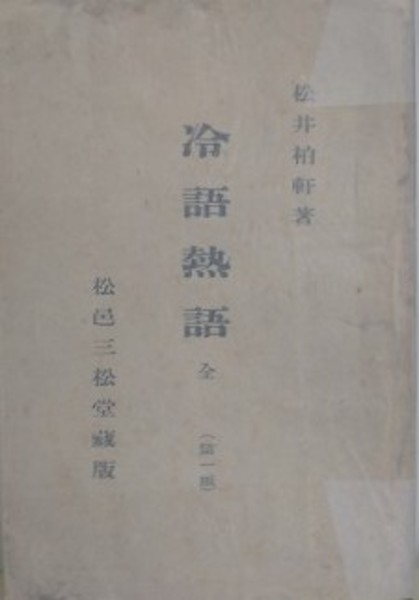 松井柏軒著
冷語熱語 全 (第一版)
松邑三松堂藏版